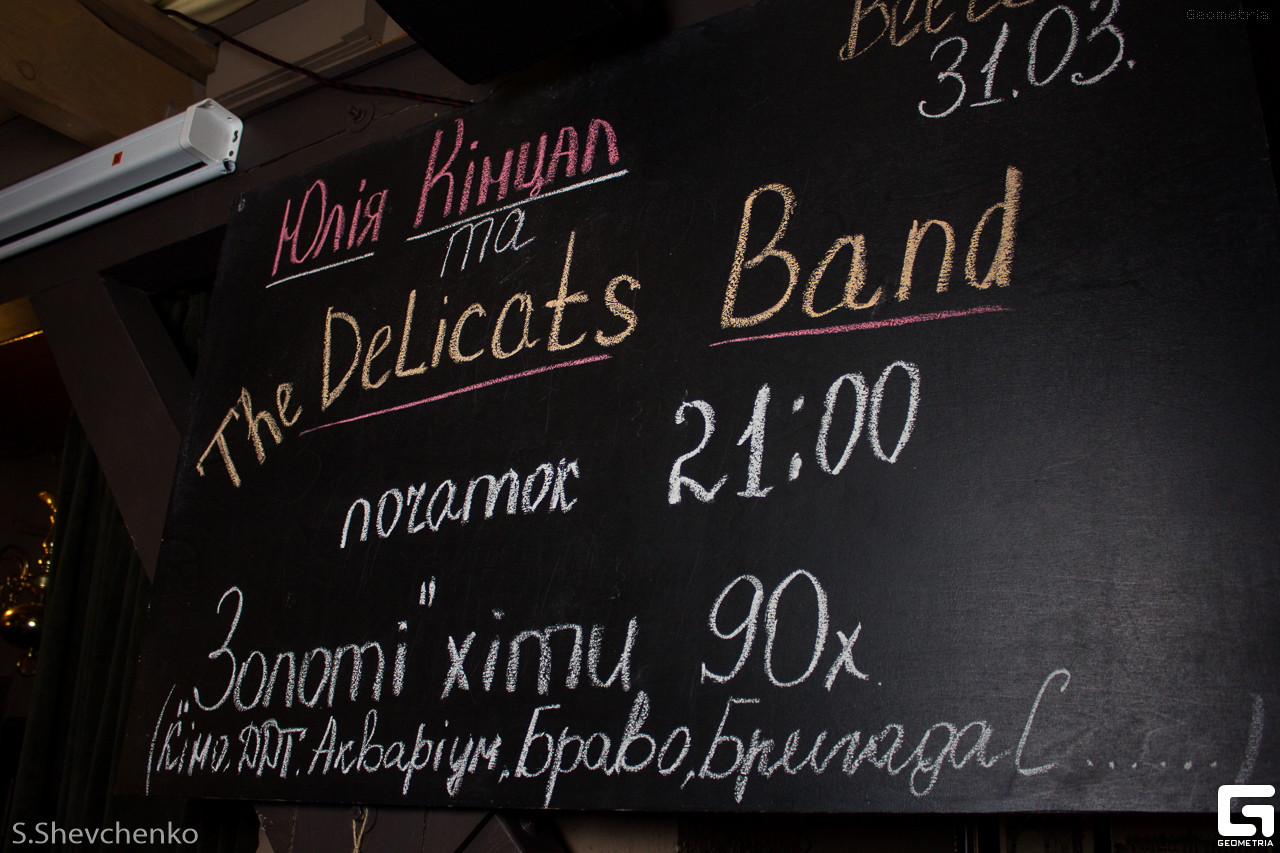 Geometria
31.03.
Юлія Кінцал
та
The Delicats Band
початок 21:00
"Золоті" хіти 90х
(Кіно. ДДТ. Акваріум, Браво, Бригада С.......)
S.Shevchenko
GEOMETRIA